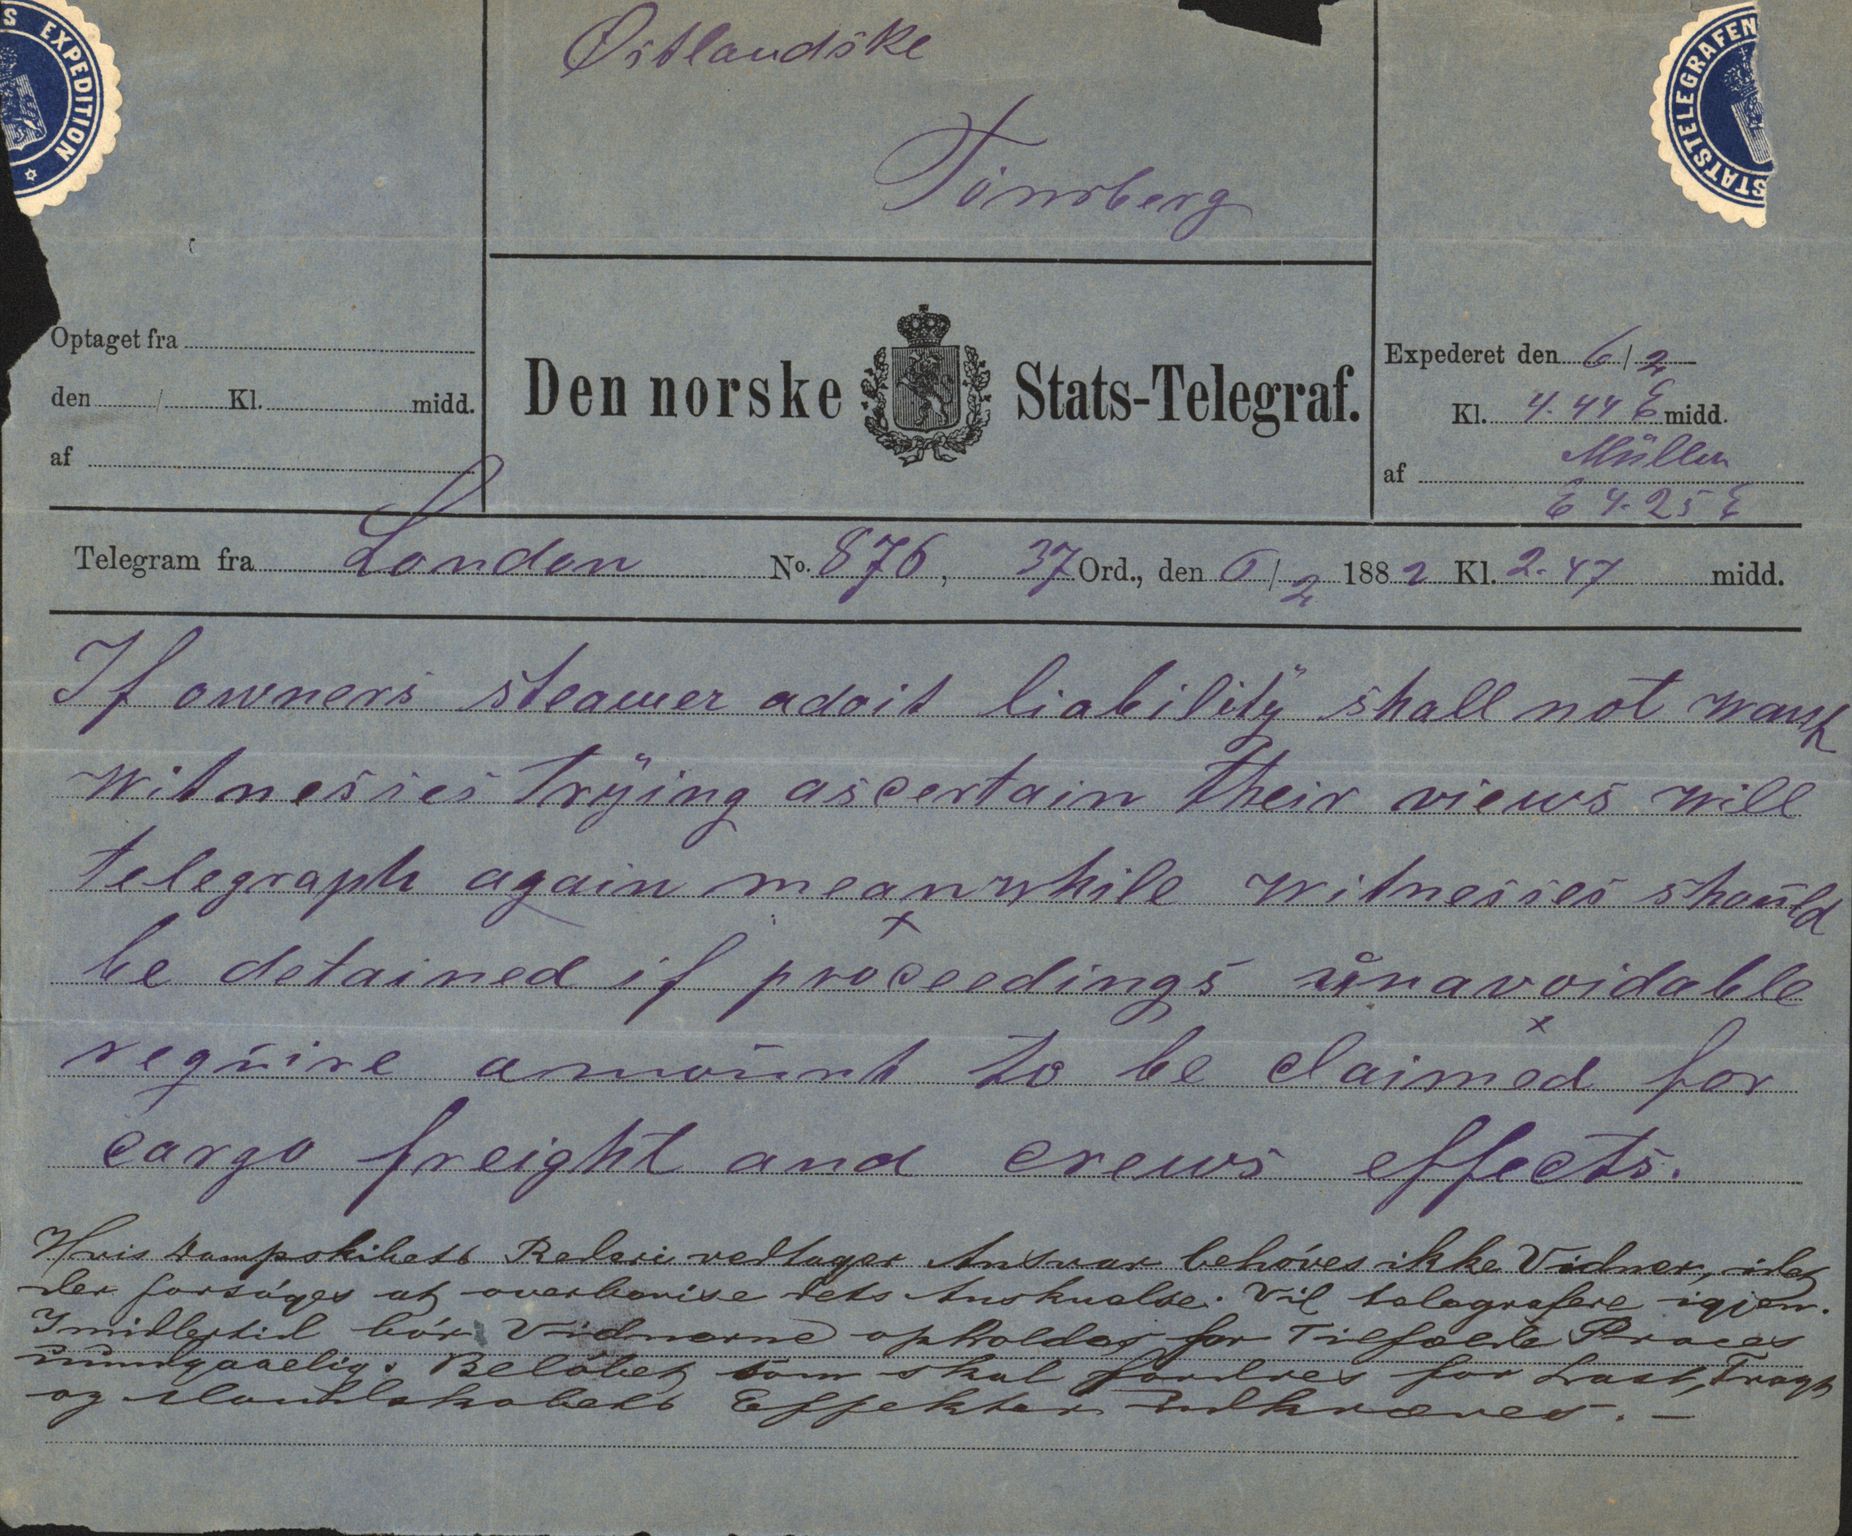 S EXPEDITION
STATSTELEGRAFEN
Østlandske
Tönsberg
Optaget fra
den / Kl. midd.
af
Den norske Stats-Telegraf.
Expederet den 6/2
Kl. 4.44 E midd.
af Müller
E 4.25 E
Telegram fra London No. 876, 37 Ord., den 6/2 1882 Kl. 2.47 midd.
If owners steamer admit liability shall not want
witnesses trÿing ascertain their views will
telegraph again meanwhile witnesses should
be detained if proceedings unavoidable
require amount to be claimed for
cargo freight and crews effects.
Hvis Dampskibets Rederi vedtager Ansvar behöves ikke Vidner, idet
der forsöges at overbevise dets Anskuelse. Vil telegrafere igjen.
Imidlertid bör Vidnerne opholdes for Tilfælde Proces
uundgaaelig. Belöbet som skal fordres for Last, Fragt
og Mandskabets Effekter udkræves. —